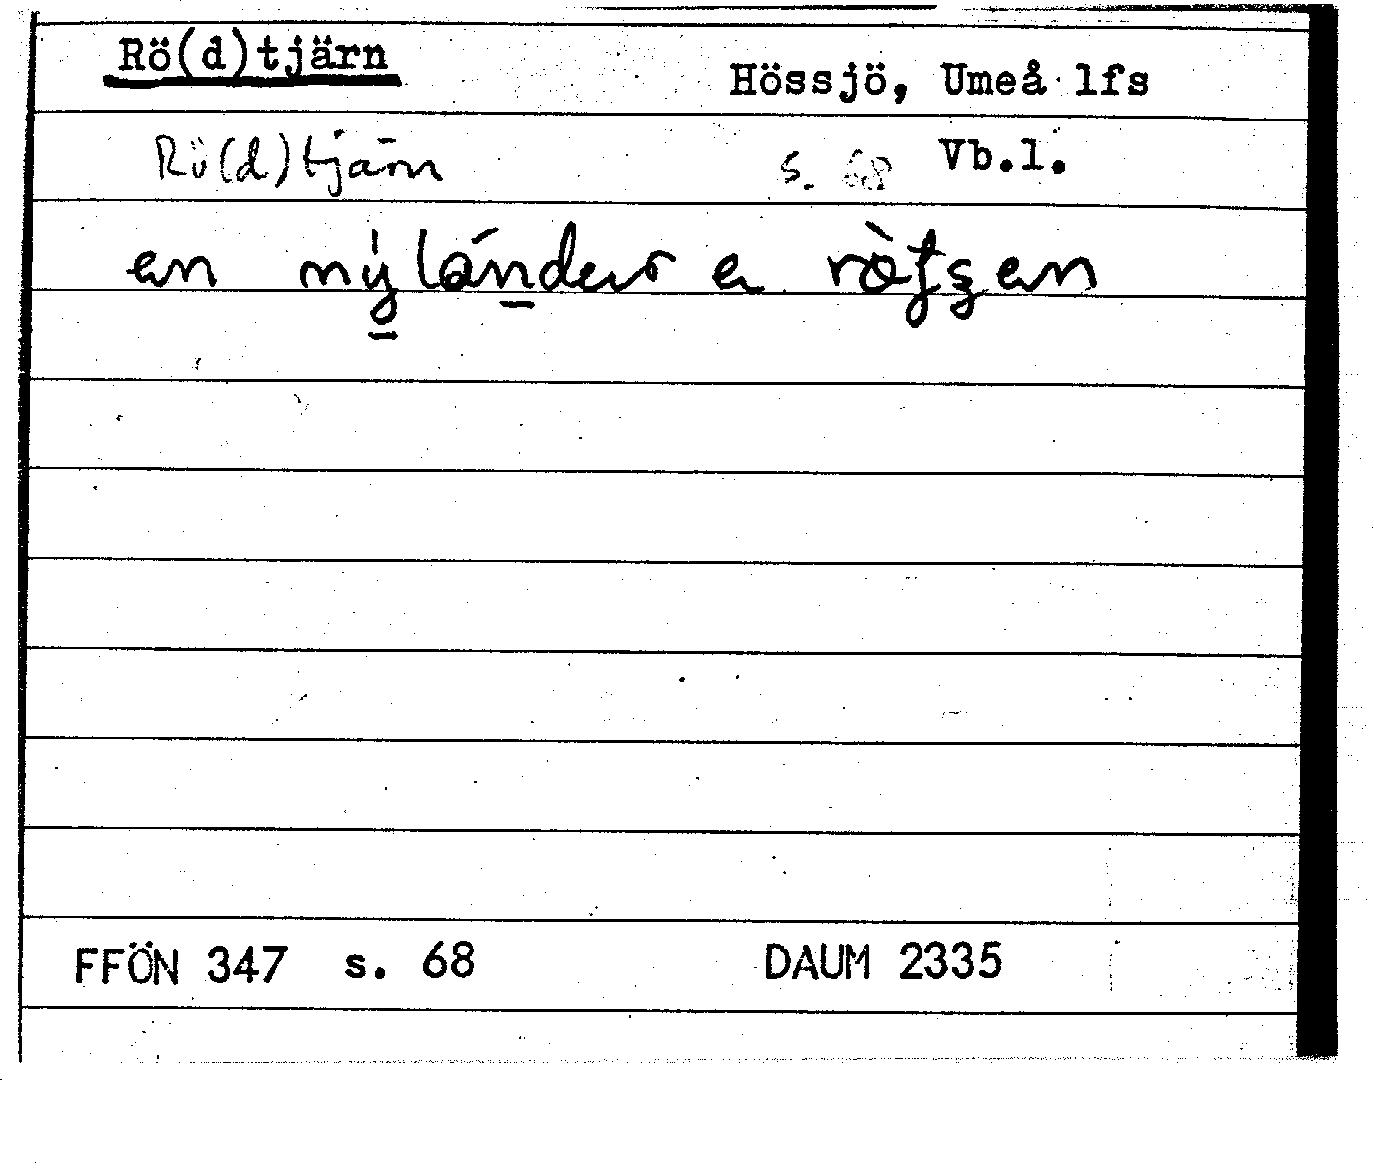 Rö(d)tjärn
Hössjö, Umeå lfs
Rö(d)tjärn s. 68 Vb.l.
en
FFÖN 347 s. 68 DAUM 2335